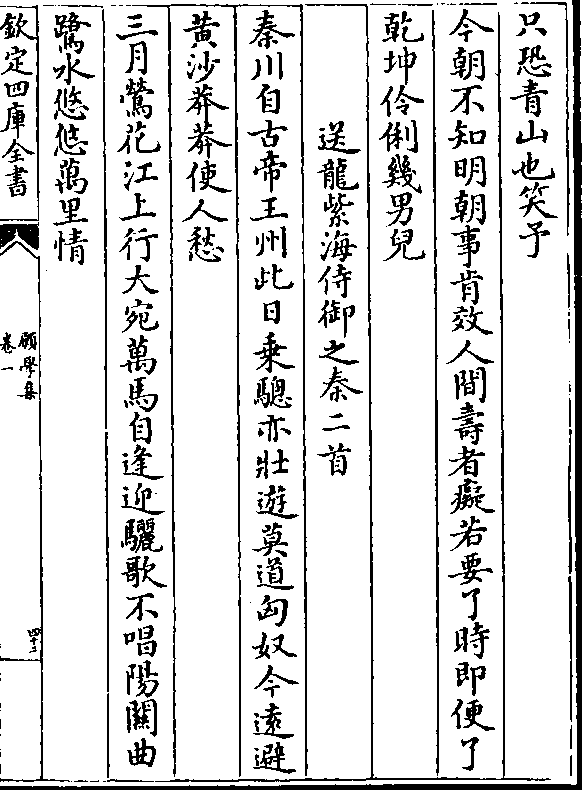 只恐青山也笑予
今朝不知明朝事肯效人間壽者癡若要了時即便了
乾坤伶俐幾男兒
送龍紫海侍御之秦二首
秦川自古帝王州此日乗驄亦壯遊莫道匈奴今逺避
黄沙莽莽使人愁
三月鶯花江上行大宛萬馬自逢迎驪歌不唱陽關曲
鷺水悠悠萬里情
欽定四庫全書
願學集
卷一
四十二